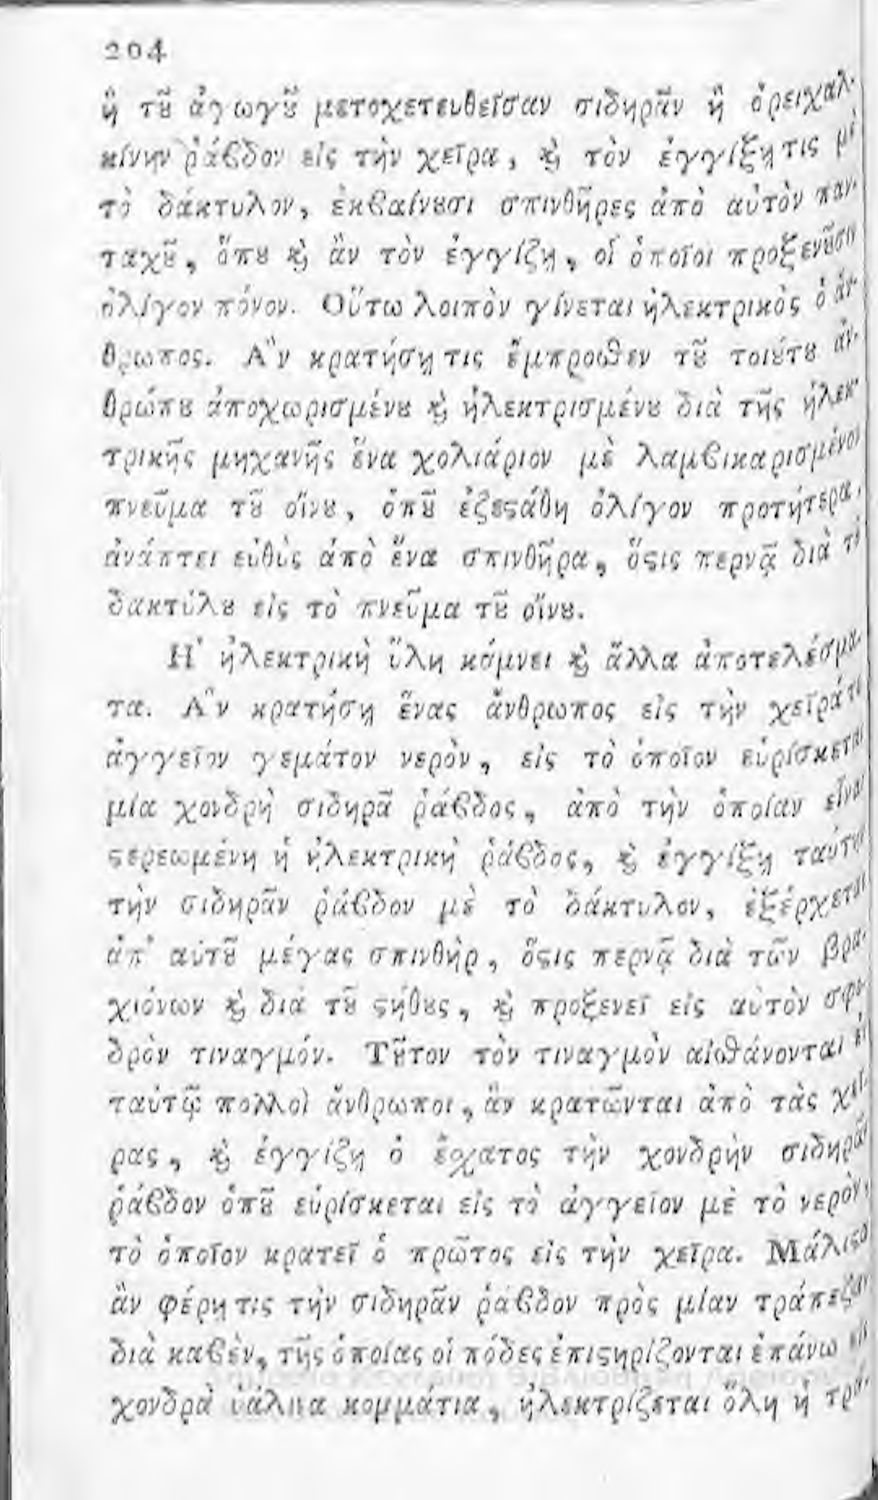 204
ἢ τȣ͂ ἀγωγȣ͂ μετοχετευθεῖσαν σιδηρᾶν ἢ ὀρειχαλ-
κίνην ῥάβδον εἰς τὴν χεῖρα, ϗ τὸν ἐγγίξῃ τις μὲ
τὸ δάκτυλον, ἐκβαίνȣσι σπινθῆρες ἀπὸ αὐτὸν παν-
ταχȣ͂, ὅπȣ ϗ ἂν τὸν ἐγγίζῃ, οἳ ὁποῖοι προξενȣ͂σιν
ὀλίγον πόνον. Οὕτω λοιπὸν γίνεται ἠλεκτρικὸς ὁ ἄν-
θρωπος. Α῍ν κρατήσῃ τις ἔμπροσθεν τȣ͂ τοιȣ́τȣ ἀν-
θρώπȣ ἀποχωρισμένȣ ϗ ἠλεκτρισμένȣ διὰ τῆς ἠλεκ-
τρικῆς μηχανῆς ἕνα χολιάριον μὲ λαμβικαρισμένον
πνεῦμα τȣ͂ οἴνȣ, ὁπȣ͂ ἐζεϛάθη ὀλίγον προτήτερα,
ἀνάπτει εὐθὺς ἀπὸ ἕνα σπινθῆρα, ὅϛις περνᾷ διὰ τȣ͂
δακτύλȣ εἰς τὸ πνεῦμα τȣ͂ οἴνȣ.
Η῾ ἠλεκτρικὴ ὕλη κάμνει ϗ ἄλλα ἀποτελέσμα-
τα. Α῍ν κρατήσῃ ἕνας ἄνθρωπος εἰς τὴν χεῖράτȣ
ἀγγεῖον γεμάτον νερὸν, εἰς τὸ ὁποῖον εὑρίσκεται
μία χονδρὴ σιδηρᾶ ῥάβδος, ἀπὸ τὴν ὁποίαν εἶναι
ϛερεωμένη ἡ ἠλεκτρικὴ ῥάβδος, ϗ ἐγγίξῃ ταύτην
τὴν σιδηρᾶν ῥάβδον μὲ τὸ δάκτυλον, ἐξέρχεται
ἀπ' αὐτȣ͂ μέγας σπινθὴρ, ὅϛις περνᾷ διὰ τῶν βρα-
χιόνων ϗ διὰ τȣ͂ ϛήθȣς, ϗ προξενεῖ εἰς αὐτὸν σφο-
δρὸν τιναγμόν. Τȣ͂τον τὸν τιναγμὸν αἰσθάνονται ἐν
ταὐτῷ πολλοὶ ἄνθρωποι, ἂν κρατῶνται ἀπὸ τὰς χεῖ-
ρας, ϗ ἐγγίζῃ ὁ ἔσχατος τὴν χονδρὴν σιδηρᾶν
ῥάβδον ὁπȣ͂ εὑρίσκεται εἰς τὸ ἀγγεῖον μὲ τὸ νερὸν,
τὸ ὁποῖον κρατεῖ ὁ πρῶτος εἰς τὴν χεῖρα. Μάλιϛα
ἂν φέρῃ τις τὴν σιδηρᾶν ῥάβδον πρὸς μίαν τράπεζαν
διὰ καβὲν, τῆς ὁποίας οἱ πόδες ἐπιϛηρίζονται ἐπάνω εἰς
χονδρὰ ὑάλινα κομμάτια, ἠλεκτρίζεται ὅλη ἡ τρά-